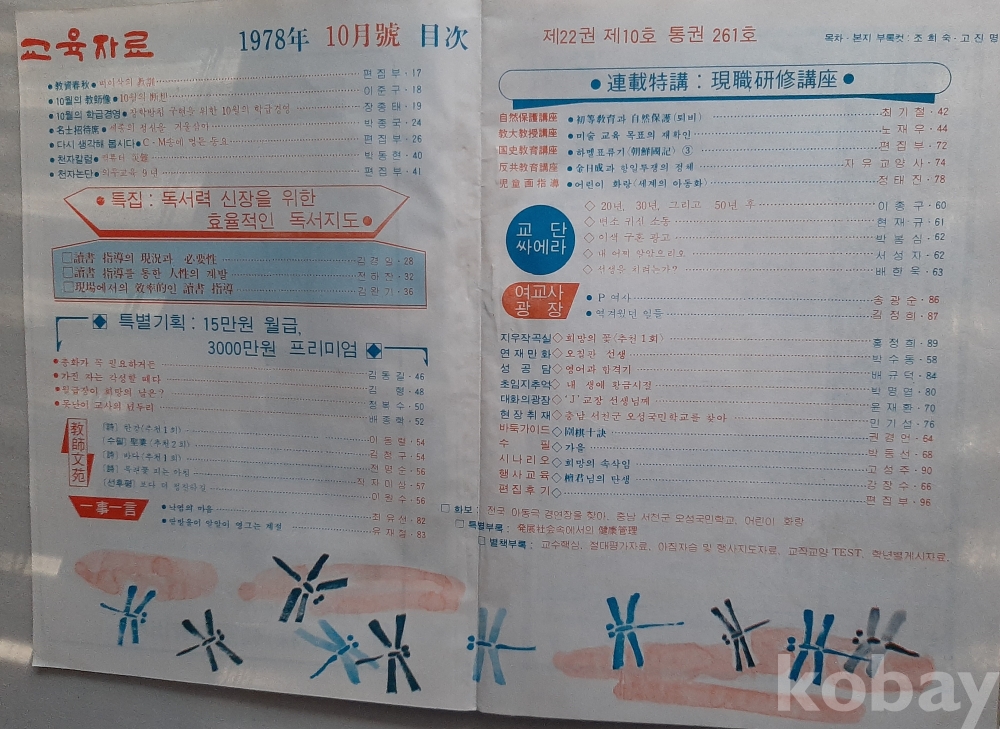 교육자료
1978年 10月號 目次
●教資春秋●떡이상의 教訓 편집부·17
●10월의 教師像●10월의 師想 이준구·18
●10월의 학급경영● 구현을 위한 10월의 학급경영 장흥태·19
●名士招待席●세종의 정신을 거울삼아 박종국·24
●다시 생각해 봅시다●C·M송에 멍든 동요 편집부·26
●천자칼럼● 박동현·40
●천자논단●의무교육 9년 편집부·41
●특집: 독서력 신장을 위한
효율적인 독서지도●
□讀書 指導의 現況과 必要性 김경일·28
□讀書 指導를 통한 人性의 계발 전하찬·32
□現場에서의 效率的인 讀書 指導 김완기·36
◈ 특별기획: 15만원 월급,
3000만원 프리미엄 ◈
●중화가 꼭 필요하거든 김동길·46
●가진 자는 각성할 때다 김형·48
●월급쟁이 희망의 날은? 정복수·50
●못난이 교사의 넋두리 배종학·52
教師文苑
〔詩〕한강(추천1회) 이동렬·54
〔수필〕聖書(추천2회) 김정구·54
〔詩〕바다(추천1회) 전명순·56
〔詩〕 되는 까닭 미상·57
〔선후평〕보다 더 이원수·56
一事一言
●낙엽의 마을 최유선·82
●알밤들이 알알이 영그는 계절 유재철·83
제22권 제10호 통권 261호
목차·본지 부록컷: 조희숙·고진명
●連載特講: 現職研修講座●
自然保護講座 ●初等教育과 自然保護(퇴비) 최기철·42
教大教授講座 ●미술 교육 목표의 재확인 노재우·44
国史教育講座 ●하멜표류기(朝鮮國記) ③ 편집부·72
反共教育講座 ●金日成과 항일투쟁의 정체 자유교양사·74
児童画指導 ●어린이 화랑(세계의 아동화) 정태진·78
교단
싸에라
◇20년, 30년, 그리고 50년 후 이종구·60
◇변소 귀신 소동 현재규·61
◇이색 구혼 광고 박봉심·62
◇내 어찌 말았으리오 서성자·62
◇선생을 치려는가? 배한욱·63
여교사
광장
●P여사 송광순·86
●역겨웠던 일들 김정희·87
지우작곡실◇희망의 꽃(추천1회) 홍정희·89
연재만화◇오길관 선생 박수동·58
성공담◇영어과 합격기 배규덕·84
초임지추억◇내 생애 황금시절 박명엽·80
대화의광장◇'J'교장 선생님께 윤재환·70
현장취재◇충남 서천군 오성국민학교를 찾아 민기설·76
바둑가이드◇圍棋十訣 권경언·64
수필◇가을 박동선·68
시나리오◇희망의 속삭임 고성주·90
행사교육◇檀君님의 탄생 강창수·66
편집후기◇ 편집부·96
□화보: 전국 아동극 경연장을 찾아, 충남 서천군 오성국민학교, 어린이 화랑
□특별부록: 発展社会속에서의 健康管理
□별책부록: 교수핵심, 절대평가자료, 아침자습 및 행사지도자료, 교직교양 TEST, 학년별게시자료,
kobay